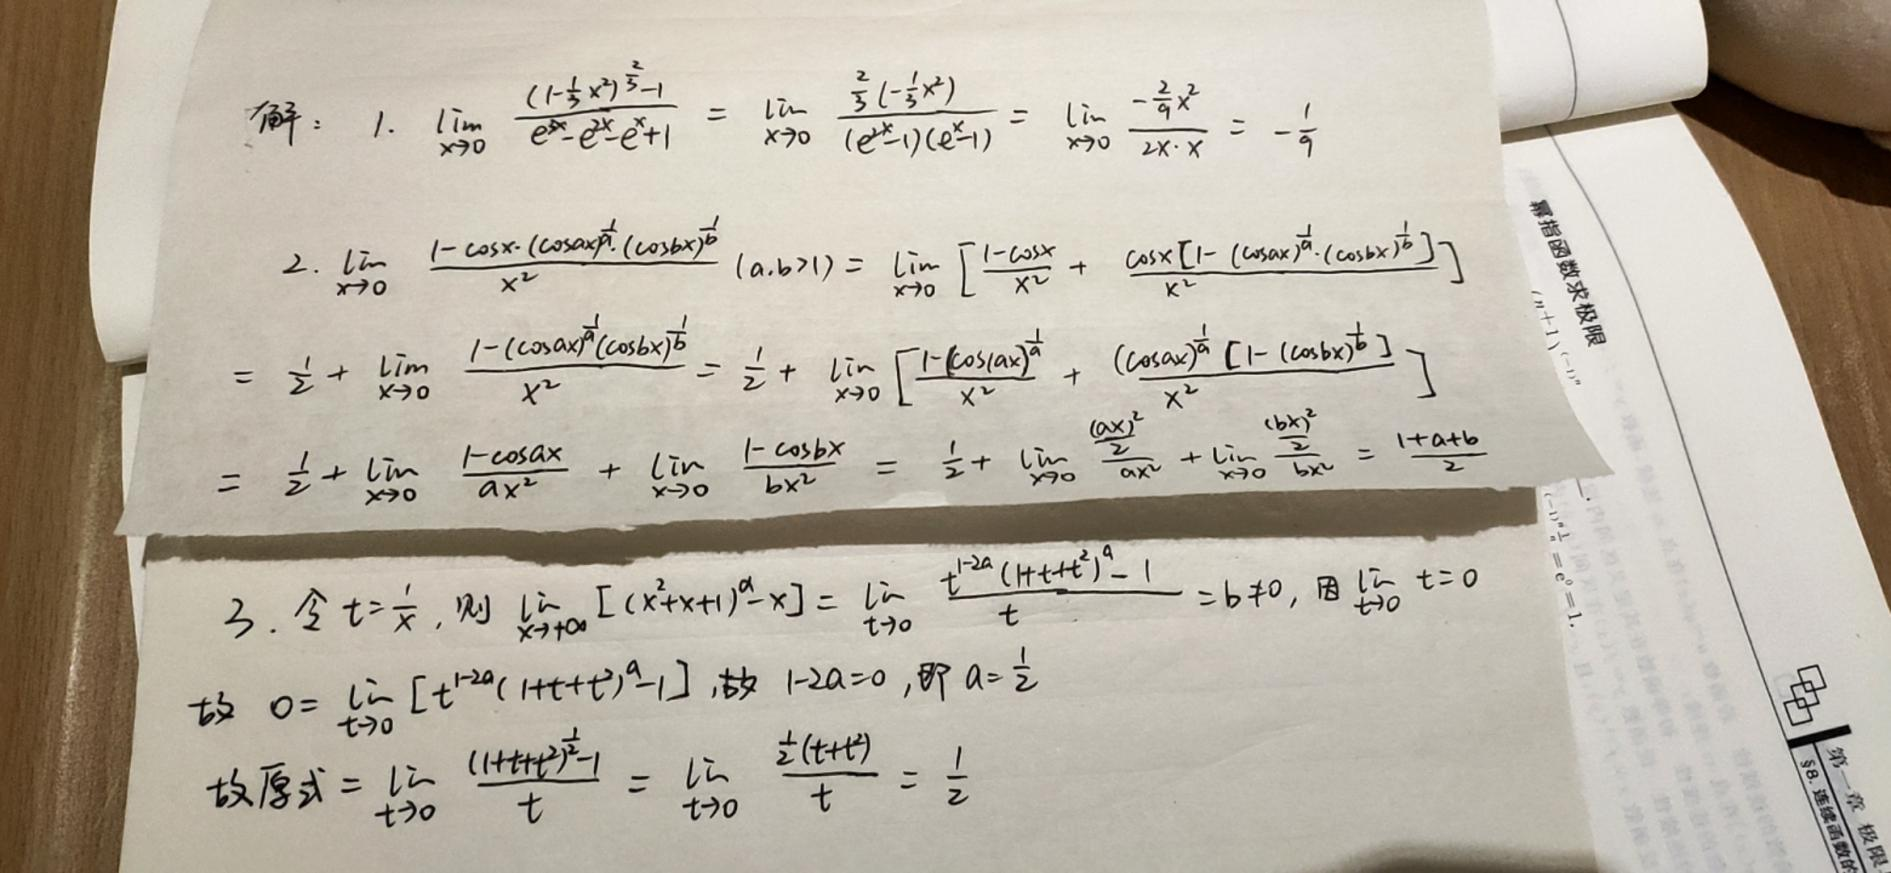 解: 1. lim x→0 ((1-⅓x²)^(2/3)-1)/(e^(3x)-e^(2x)-e^x+1) = lim x→0 (⅔(-⅓x²))/((e^(2x)-1)(e^x-1)) = lim x→0 (-2/9 x²)/(2x·x) = -1/9
2. lim x→0 (1-cosx·(cosax)^(1/a)·(cosbx)^(1/b))/x² (a.b>1) = lim x→0 [(1-cosx)/x² + (cosx[1-(cosax)^(1/a)·(cosbx)^(1/b)])/x²]
= 1/2 + lim x→0 (1-(cosax)^(1/a)(cosbx)^(1/b))/x² = 1/2 + lim x→0 [(1-(cos(ax)^(1/a))/x² + ((cosax)^(1/a)[1-(cosbx)^(1/b)])/x²]
= 1/2 + lim x→0 (1-cosax)/(ax²) + lim x→0 (1-cosbx)/(bx²) = 1/2 + lim x→0 ((ax)²/2)/(ax²) + lim x→0 ((bx)²/2)/(bx²) = (1+a+b)/2
3. 令 t=1/x, 则 lim x→+∞ [(x²+x+1)^a-x] = lim t→0 (t^(1-2a)(1+t+t²)^a-1)/t = b≠0, 因 lim t→0 t=0
故 0= lim t→0 [t^(1-2a)(1+t+t²)^a-1], 故 1-2a=0, 即 a=1/2
故原式= lim t→0 ((1+t+t²)^(1/2)-1)/t = lim t→0 (½(t+t²))/t = 1/2
幂指函数求极限
(n+1)^(-1)^n
= e⁰ = 1.
第一章 极限
§8. 连续函数的